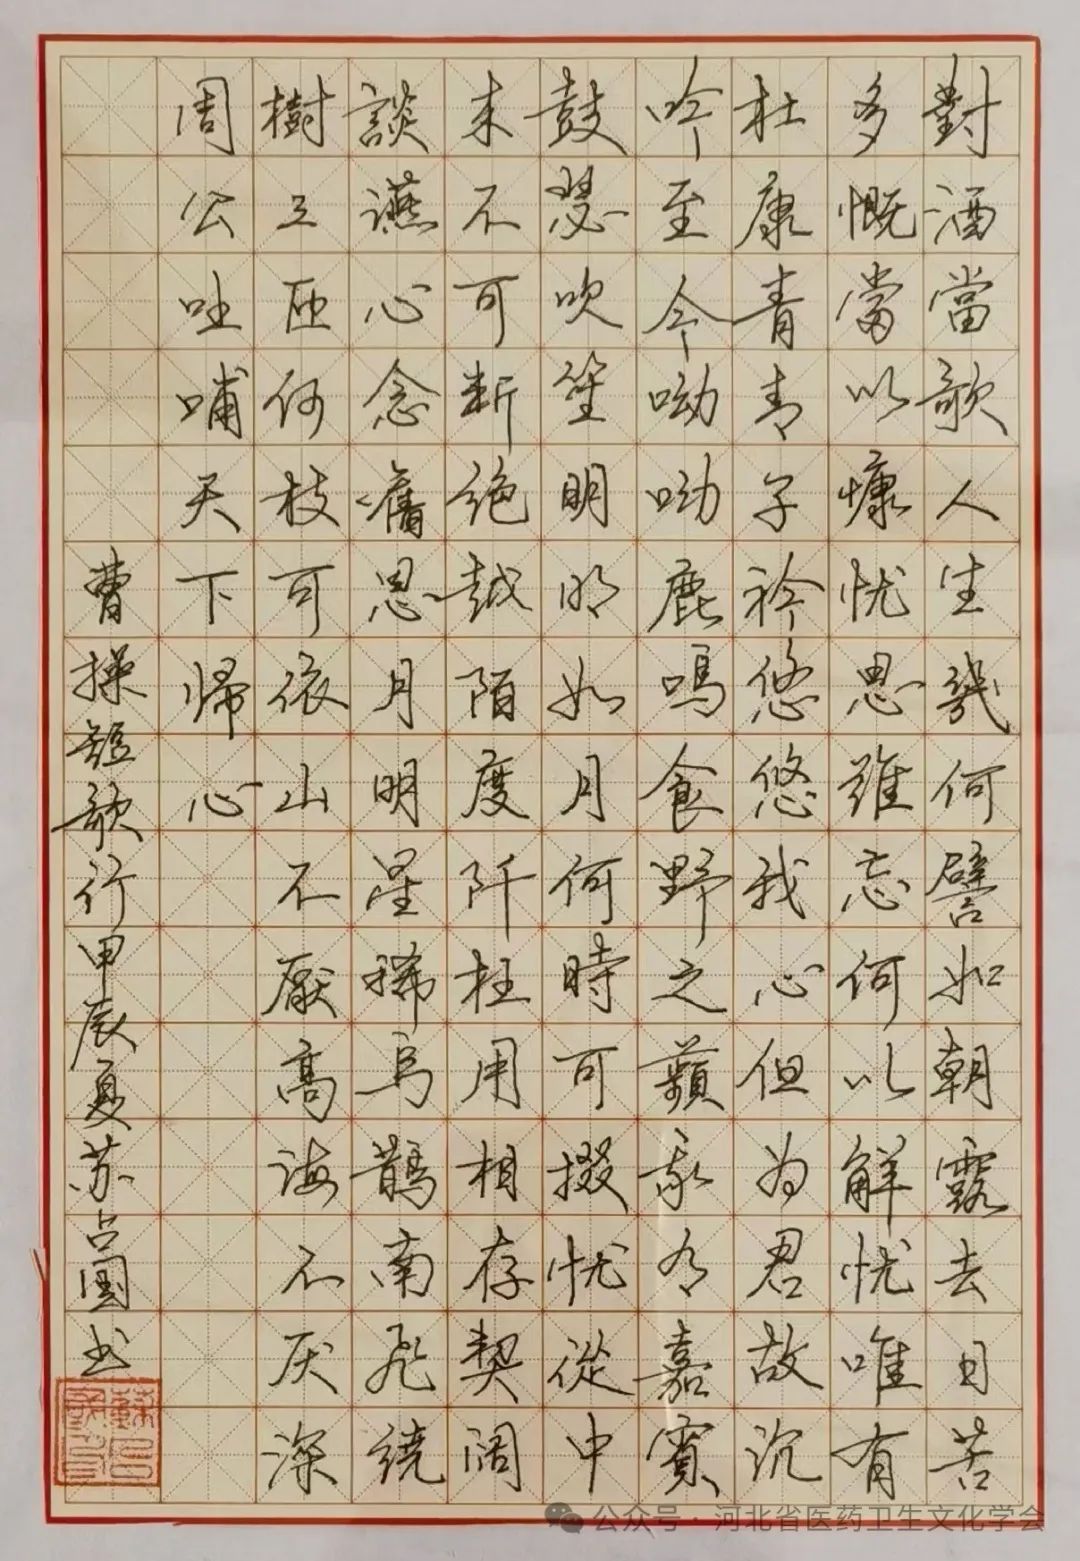 對酒當歌人生幾何譬如朝露去日苦
多慨當以慷忧思難忘何以解忧唯有
杜康青青子衿悠悠我心但为君故沉
吟至今呦呦鹿鳴食野之蘋我有嘉賓
鼓瑟吹笙明明如月何時可掇忧從中
来不可断绝越陌度阡枉用相存契阔
談讌心念舊恩月明星稀烏鵲南飛繞
樹三匝何枝可依山不厭高海不厌深
周公吐哺天下歸心
曹操短歌行甲辰夏苏占國书
公众号·河北省医药卫生文化学会